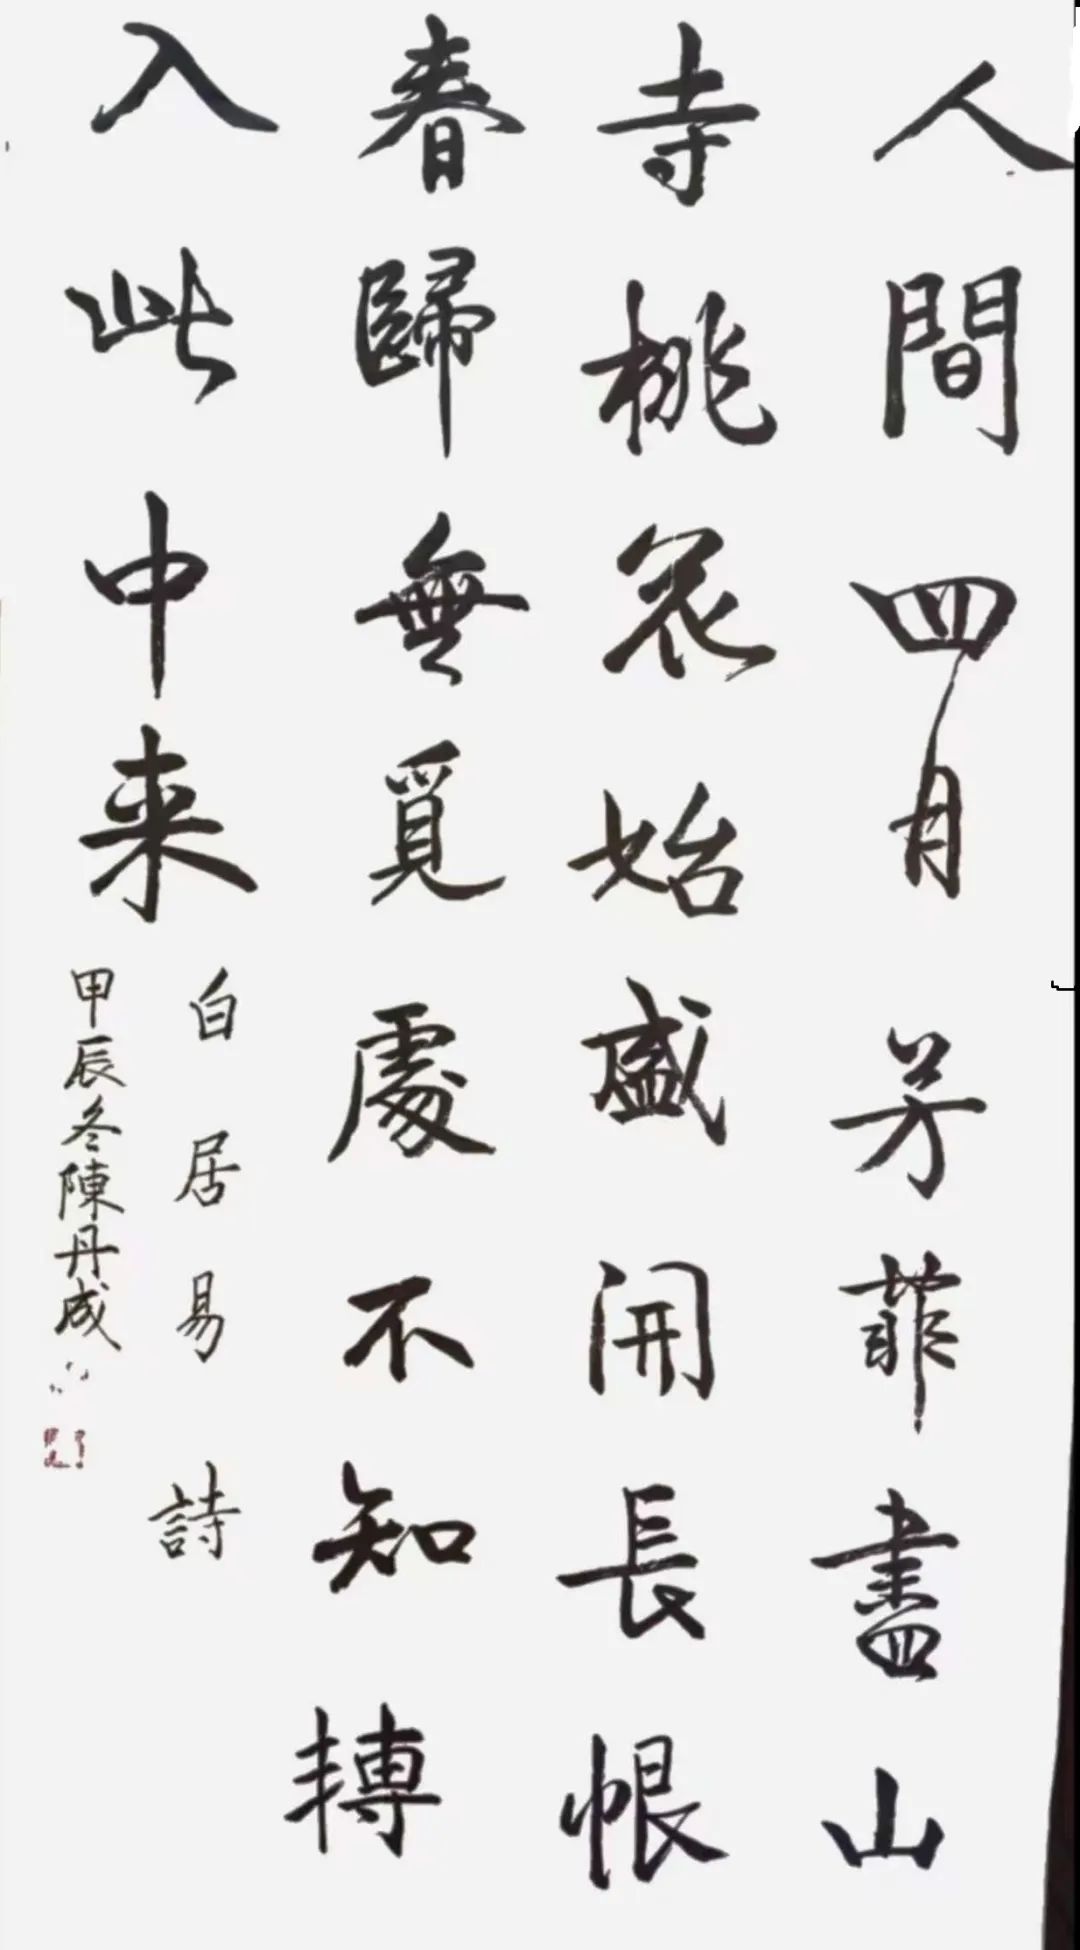 人間四月芳菲盡山
寺桃花始盛開長恨
春歸無覓處不知轉
入此中来
白居易詩
甲辰冬陳丹成